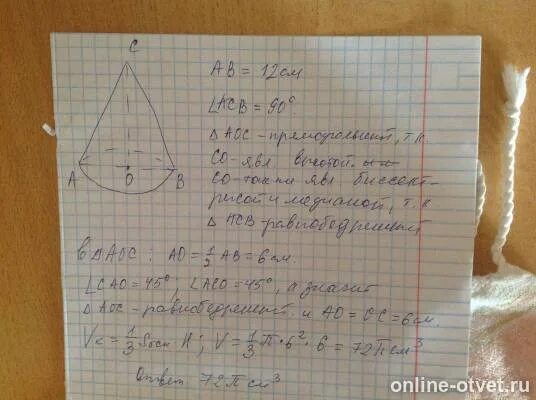 C
A
O
B
AB = 12 см
∠ACB = 90°
△AOC - прямоугольный, т.к
CO - явл высотой.
CO - также явл биссект-
рисой и медианой, т.к
△ACB - равнобедренный
в △AOC : AO = 1/2 AB = 6 см.
∠CAO = 45°, ∠ACO = 45°, а значит
△AOC - равнобедренный и AO = OC = 6 см.
Vк = 1/3 Sосн H ; V = 1/3 π · 6² · 6 = 72π см³
Ответ 72π см³
online-otvet.ru